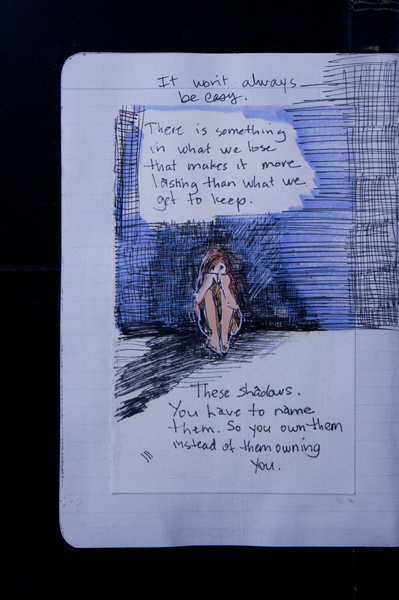 It won't always
be easy.
There is something
in what we lose
that makes it more
lasting than what we
get to keep.
These shadows.
You have to name
them. So you own them
instead of them owning
you.